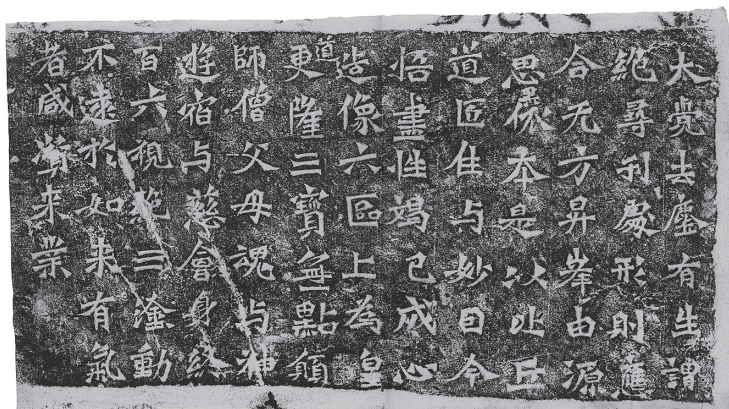 大覺去塵有生謂
絶尋刋處形則應
合无方昇峯由源
思依本是以比丘
道匠住与妙因今
悟盡性竭己成心
造像六區上為皇
道更隆三寶無點願
師僧父母魂与神
遊宿与慈會身終
百六視絶三塗動
不遠於如來有氣
者咸資來業